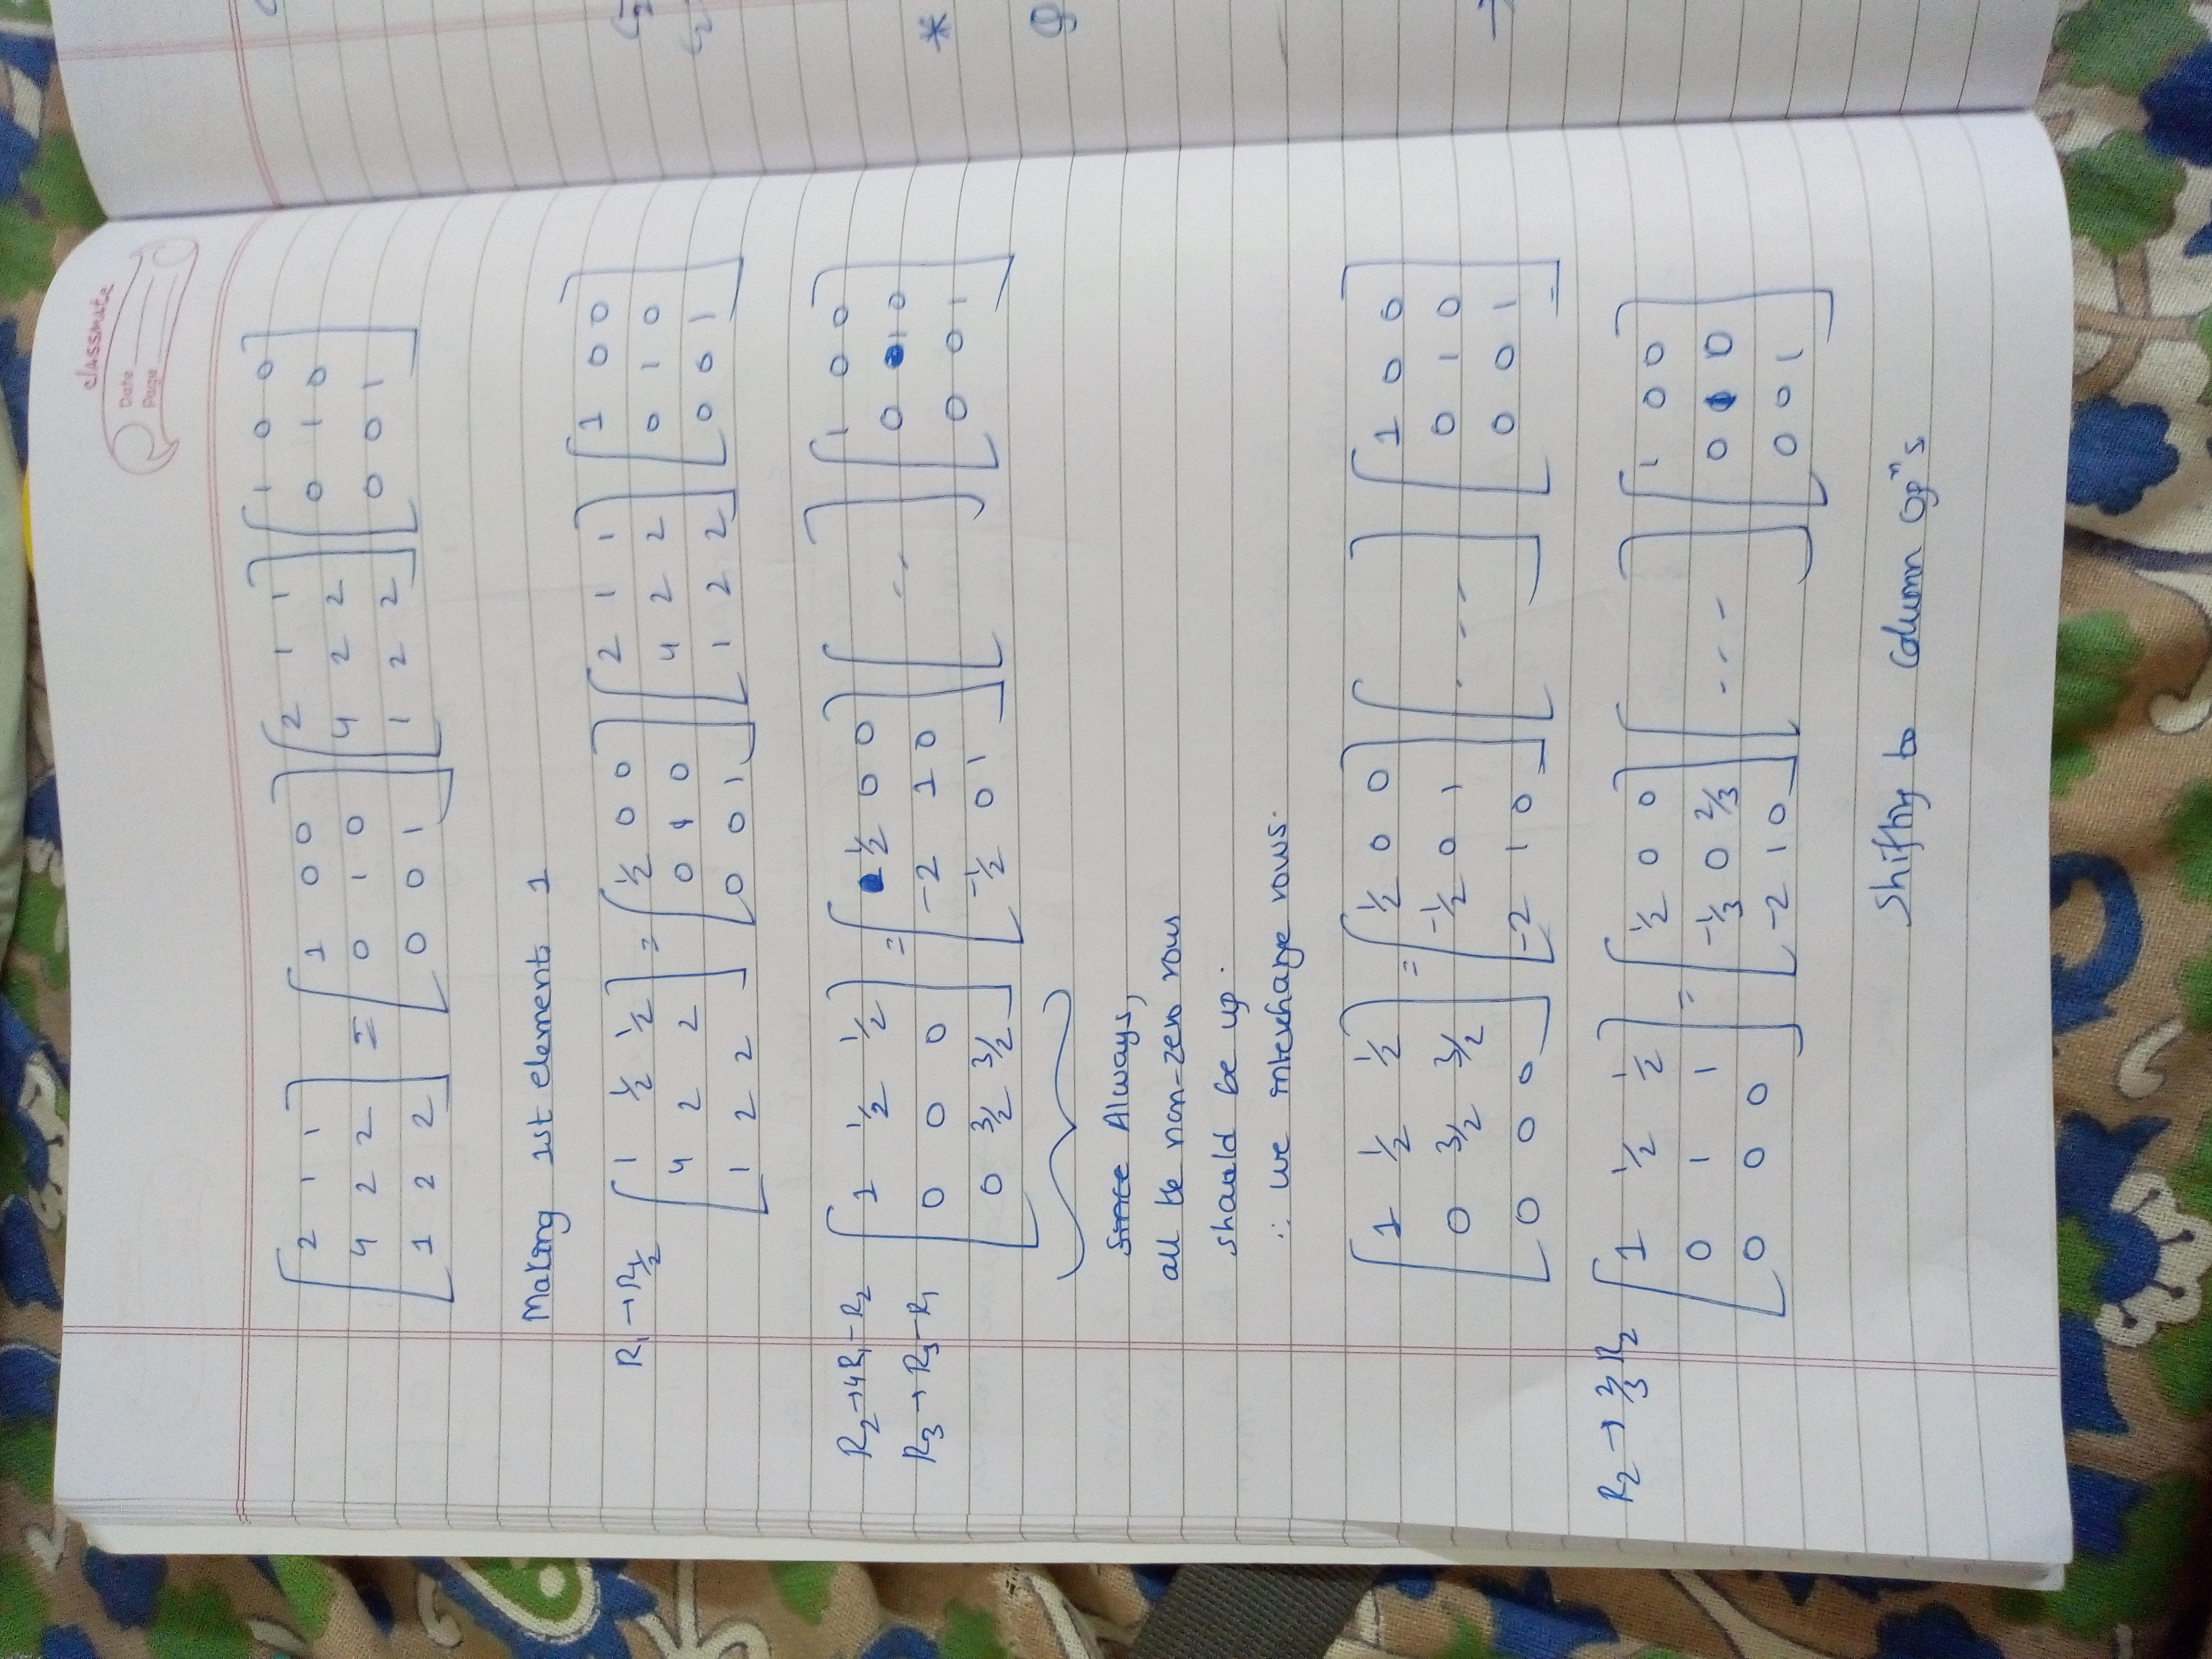 classmate
Date
Page
[2 1 1; 4 2 2; 1 2 2] = [1 0 0; 0 1 0; 0 0 1] [2 1 1; 4 2 2; 1 2 2] [1 0 0; 0 1 0; 0 0 1]
Making 1st element 1
R₁→R₁/2 [1 ½ ½; 4 2 2; 1 2 2] = [½ 0 0; 0 1 0; 0 0 1] [2 1 1; 4 2 2; 1 2 2] [1 0 0; 0 1 0; 0 0 1]
R₂→4R₁-R₂
R₃→R₃-R₁ [1 ½ ½; 0 0 0; 0 3/2 3/2] = [½ 0 0; -2 1 0; -½ 0 1] [...] [1 0 0; 0 1 0; 0 0 1]
Since Always,
all the non-zero rows
should be up.
∴ we interchange rows.
[1 ½ ½; 0 3/2 3/2; 0 0 0] = [½ 0 0; -½ 0 1; -2 1 0] [...] [1 0 0; 0 1 0; 0 0 1]
R₂→2/3 R₂ [1 ½ ½; 0 1 1; 0 0 0] = [½ 0 0; -⅓ 0 2/3; -2 1 0] [....] [1 0 0; 0 1 0; 0 0 1]
Shifting to Column opⁿs